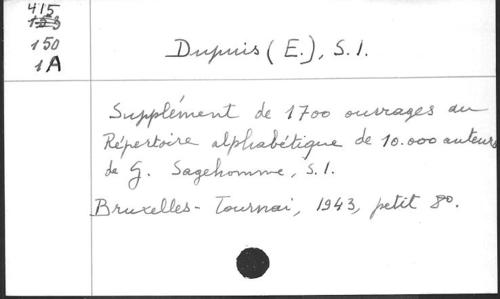 415
150
1A
Dupuis (E.), S.I.
Supplément de 1700 ouvrages au
Répertoire alphabétique de 10.000 auteurs
de G. Sagehomme, S.I.
Bruxelles-Tournai, 1943, petit 8o.